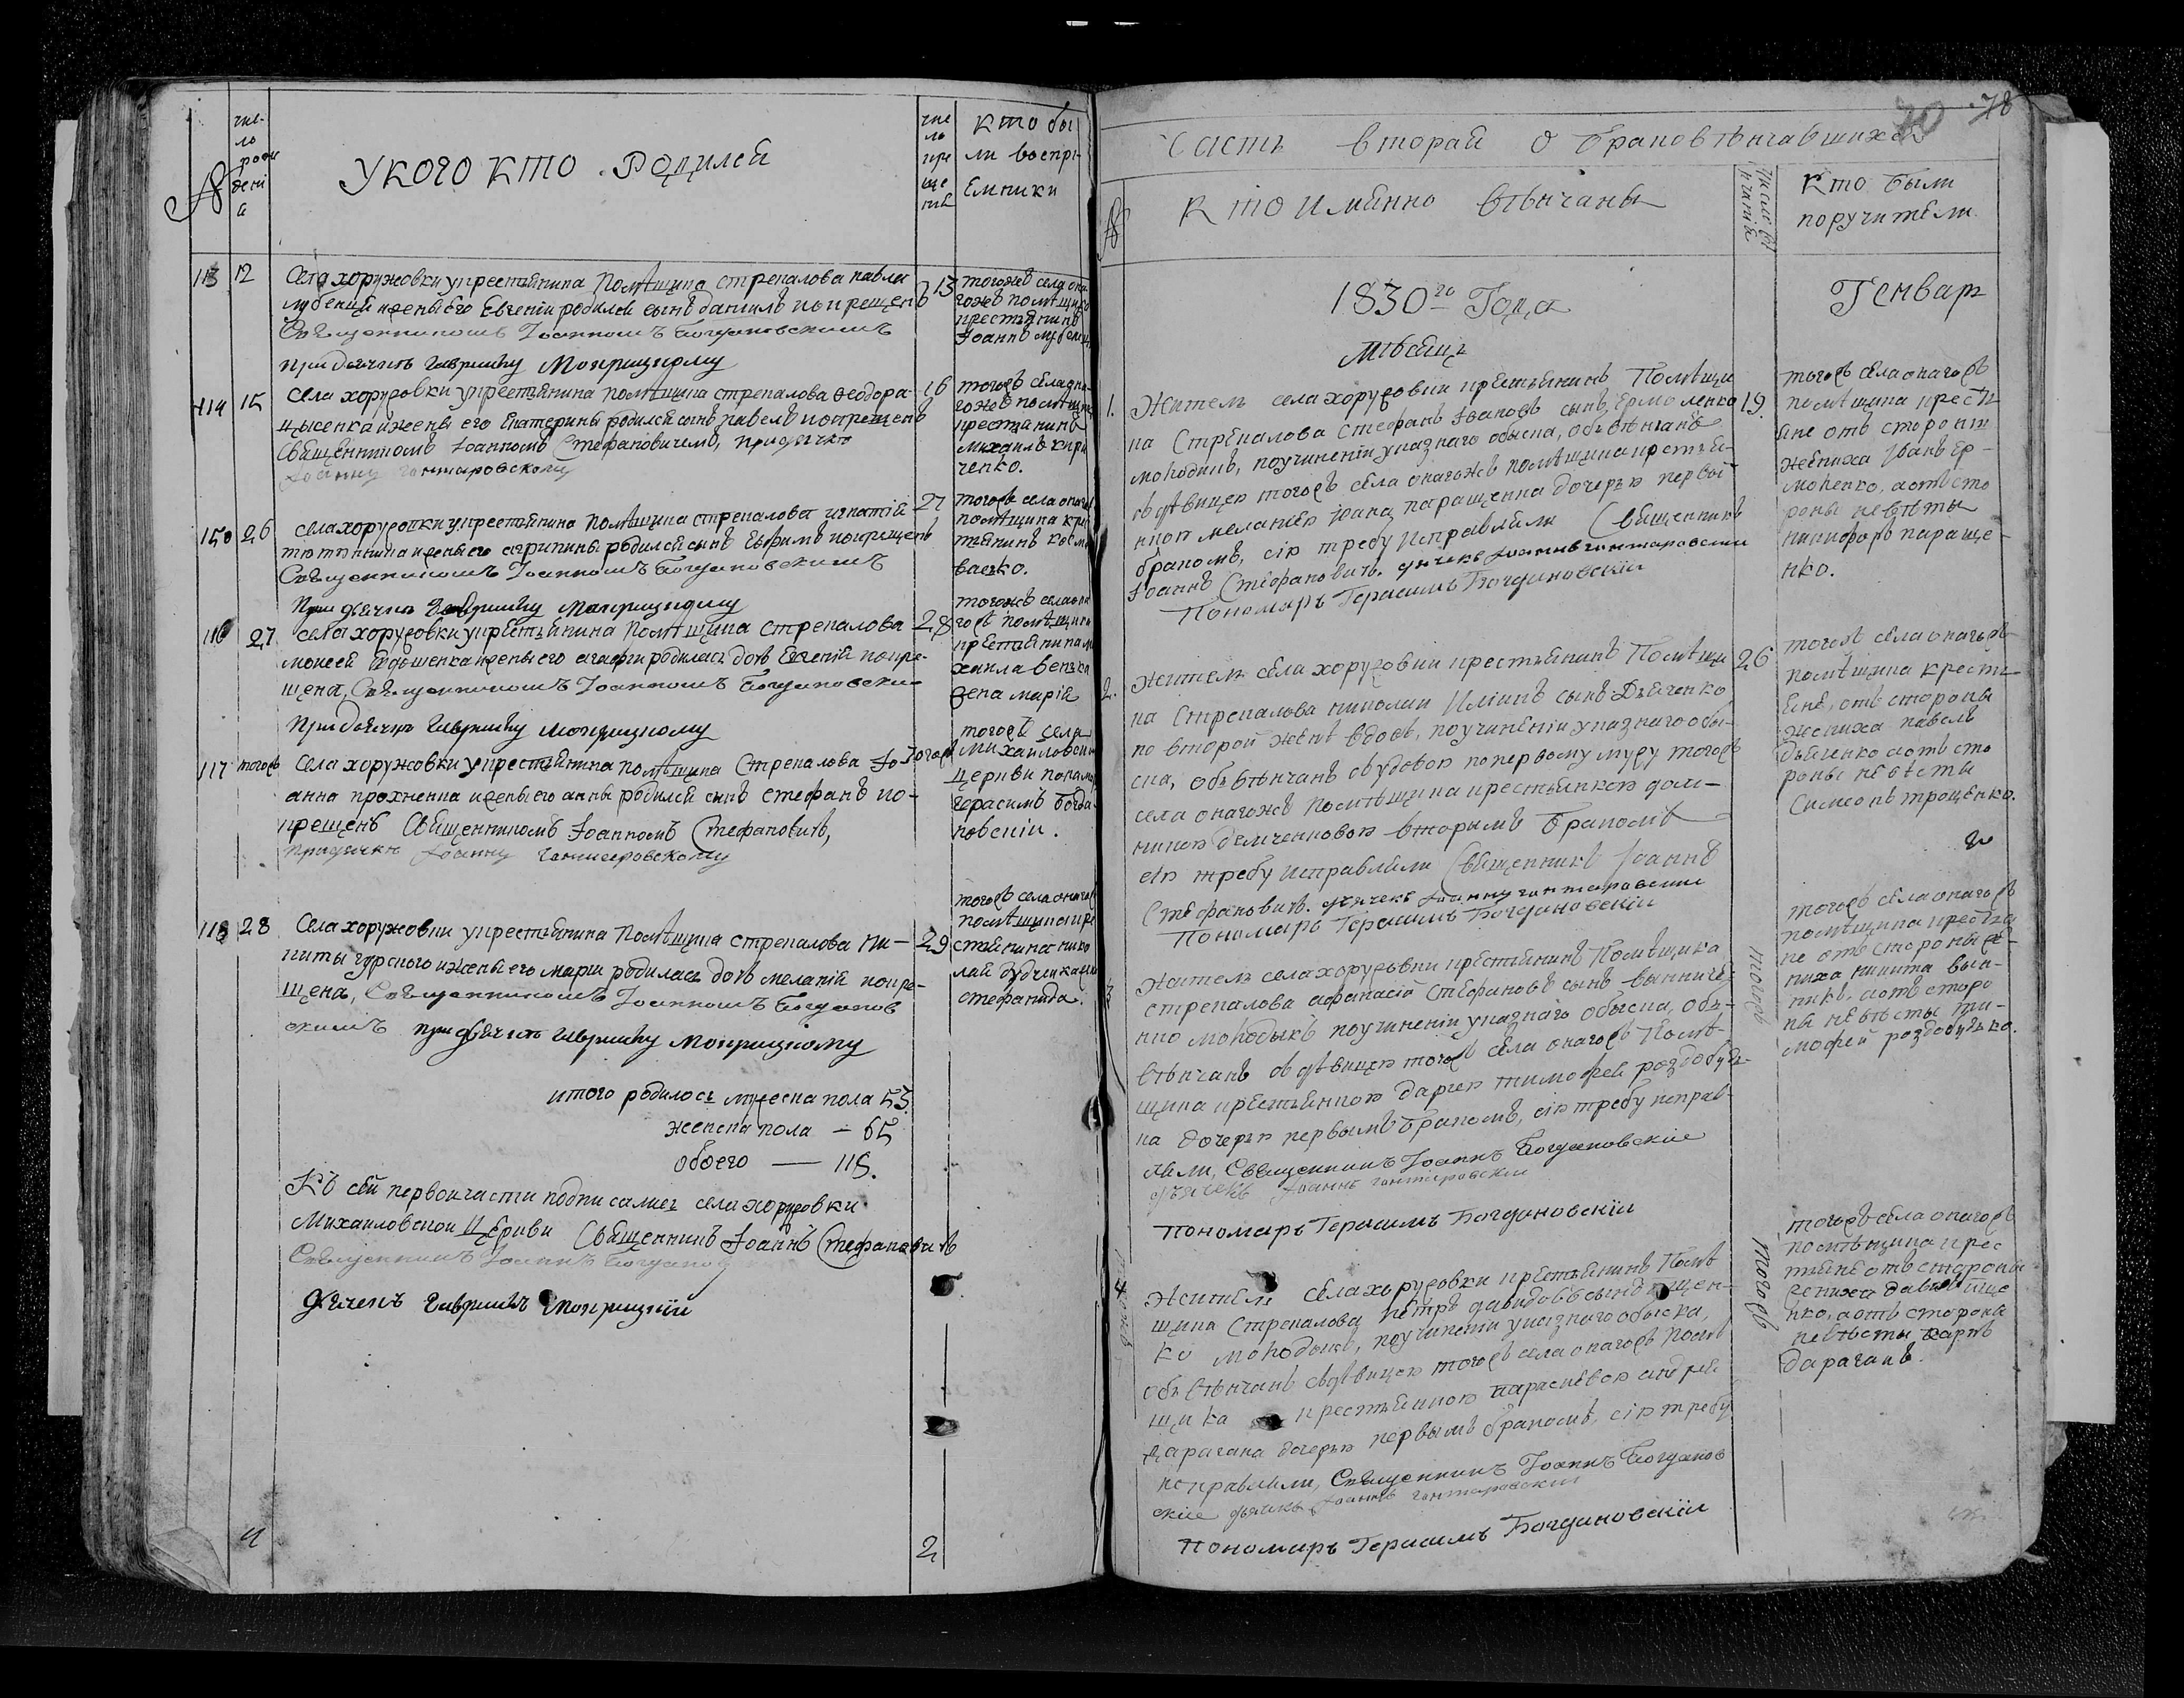 №
чис-
ло
рожд
дені
а
У КОГО КТО РОДИЛСЯ
чис
ло
кре
ще
нія
кто бы
ли воспрі-
емники
113 12 Села хоружовки у крестьянина Помѣщика стрекалова павла
и жены его Евгеніи родился сынъ даніилъ и окрещенъ
Священникомъ Іоанномъ Богдановскимъ
при дьячкѣ Гавріилу Мокрицкому
13 тогожъ села она
гожъ помѣщика
крестьянинъ
Іоаннъ
114 15 Села хоружовки у крестьянина помѣщика стрекалова Ѳеодора
и жены его Екатерины родился сынъ павелъ и окрещенъ
Священникомъ Іоанномъ Стефановичемъ, при дячку
Іоанну гонтаровскому
16 тогожъ села она
гожъ помѣщика
крестянинъ
михаилъ кири
ченко.
150 26 села хоружовки у крестьянина помѣщика стрекалова игнатій
и жены его агрипины родился сынъ Ефимъ и окрещенъ
Священникомъ Іоанномъ Богдановскимъ
При дьячкѣ Гавріилу Мокрицкому
27 тогожъ села онаго
помѣщика кре
тьянинъ косма
116 27 села хоружовки у крестьянина помѣщика стрекалова
моисея Евдошенка и жены его агафіи родилась дочь Евгенія и окре-
щена, Священникомъ Іоанномъ Богдановски
При дьячкѣ Гавріилу мокрицкому
28 тогожъ села она
гожъ помѣщика
крестьянина ми
хаила
жена марія
117 тогожъ Села хоружовки у крестьянина помѣщика Стрекалова Іо-
анна прохненка и жены его анны родился сынъ стефанъ и о-
крещенъ Священникомъ Іоанномъ Стефановичъ,
при дячкѣ Іоанну гонтаровскому
тогожъ
тогожъ села
михайловской
церкви понома
герасимъ богда
новскіи.
118 28 Села хоружовки у крестьянина Помѣщика стрекалова ни-
киты гурского и жены его марѳи родилась дочь меланія и окре-
щена, Священникомъ Іоанномъ Богданов
скимъ при дьячкѣ Гавріилу мокрицкому
29 тогожъ села онаго
помѣщика кре
стьянина нико
лая
стефанида.
итого родилось мужеска пола 53.
женска пола — 65
обоего — 118.
Къ сей первой части подписались села хоружовки
Михаиловской Церкви Священникъ Іоаннъ Стефановичъ
Священникъ Іоаннъ Богданов
дьячекъ Гавріилъ Мокрицкій
4
2
70
78
Часть вторая о бракосѣнчавшихся
№
Кто именно вѣнчаны
Кто были
поручители.
1830го Года
Генварь
Мѣсяцъ
1. Житель села хоружовки крестьянинъ Помѣщи
ка Стрекалова Стефанъ Ивановъ сынъ Ермоленко
молодикъ, по учиненіи указнаго обыска, обвѣнчанъ
съ дѣвицею тогожъ села онагожъ помѣщика крестья-
нкою меланіею Іоана паращенка дочерью первы-
бракомъ, сію требу исправляли Священникъ
Іоаннъ Стефановичъ. дячекъ Іоаннъ гонтаровскій
Пономаръ Герасимъ Богдановскій
19.
тогожъ села онагожъ
помѣщика крестя
яне отъ стороны
жениха Иванъ ер-
моленко, а отъ сто
роны невѣсты
никифоръ параще-
нко.
2. житель села хоружовки крестьянинъ Помѣщи
ка Стрекалова николаи Иліинъ сынъ Дьяченко
по второй женѣ вдовъ, по учиненіи указнаго обы-
ска, обвѣнчанъ со вдовою по первому мужу тогожъ
села онагожъ помѣщика крестьянкою дом-
никою демченковою вторымъ бракомъ
сію требу исправляли Священникъ Іоаннъ
Стефановичъ. дячекъ Іоаннъ гонтаровскіи
Пономарь Герасимъ Богдановскій
26
тогожъ села онагожъ
помѣщика кресть
яне, отъ стороны
жениха павелъ
дьяченко а отъ сто
роны невѣсты
Симеонъ троценко.
3 житель села хоружовки крестьянинъ Помѣщика
стрекалова афанасій Стефановъ сынъ
молодыкъ по учиненіи указнаго обыска, обв-
ѣнчанъ съ дѣвицею тогожъ села онагожъ Помѣ-
щика крестьянкою даріею тимофея роздобудь-
ка дочерью первымъ бракомъ, сію требу исправ-
ляли, Священникъ Іоаннъ Богдановскіи
дьячекъ Іоаннъ гонтаровскіи
Пономаръ Герасимъ Богдановскій
тогожъ
тогожъ села онагожъ
помѣщика крестья
не отъ стороны же-
ниха никита вын-
никъ, а отъ сторо
ны невѣсты ти-
мофей роздобудько.
4 Житель села хоружовки крестьянинъ Помѣ
щика Стрекалова петръ давидовъ сынъ ищен-
ко молодыкъ, по учиненіи указнаго обыска,
обвѣнчанъ съ дѣвицею тогожъ села онагожъ помѣ
щика крестьянкою параскевою андрея
Карагана дочерью первымъ бракомъ, сію требу
исправляли, Священникъ Іоаннъ Богданов
скіи дьячекъ Іоаннъ гонтаровскіи
Пономаръ Герасимъ Богдановскій
тогожъ
тогожъ села онагожъ
помѣщика крес
тьяне отъ стороны
жениха давидъ ище
нко, а отъ стороны
невѣсты карпъ
дараганъ.